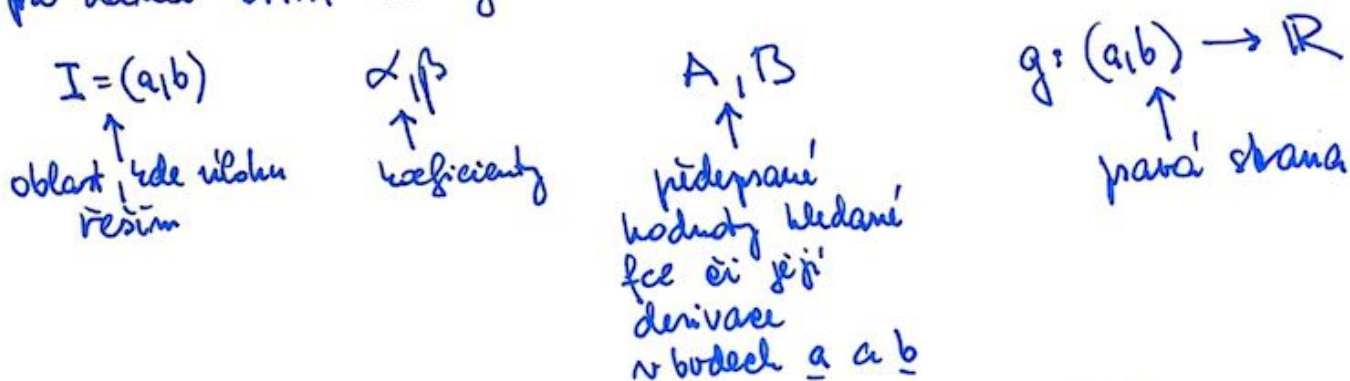 I = (a,b)
α, β
A, B
g: (a,b) → ℝ
oblast, kde úlohu
řeším
koeficienty
předepsané
hodnoty hledané
fce či její
derivace
v bodech a a b
pravá strana